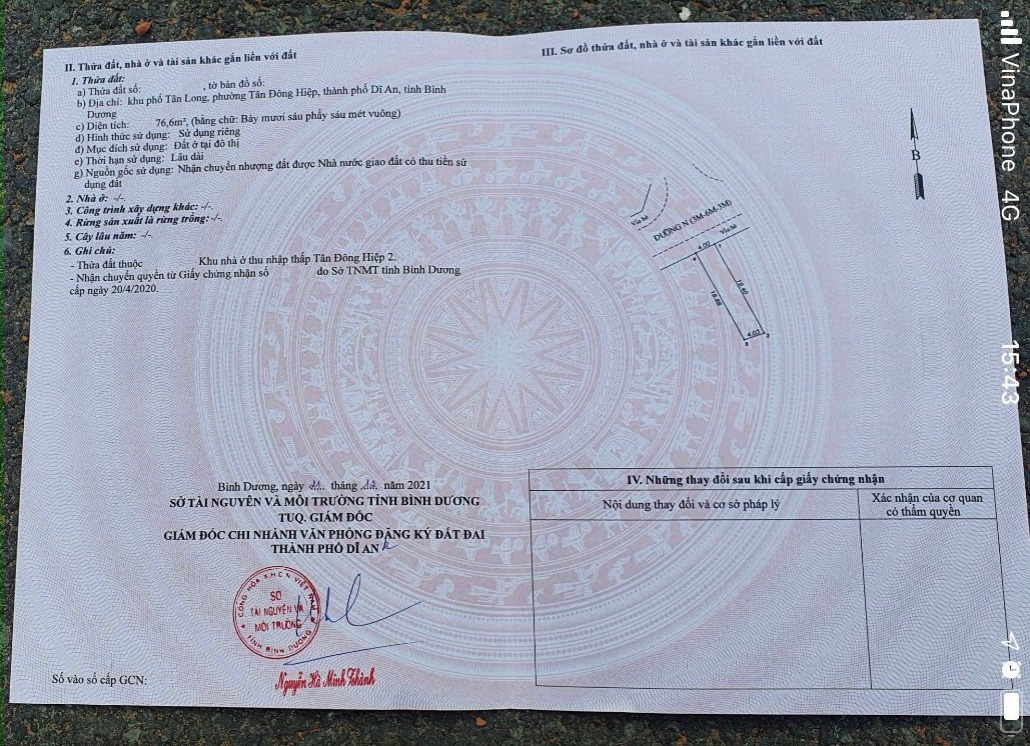 II. Thửa đất, nhà ở và tài sản khác gắn liền với đất
1. Thửa đất:
a) Thửa đất số: , tờ bản đồ số:
b) Địa chỉ: khu phố Tân Long, phường Tân Đông Hiệp, thành phố Dĩ An, tỉnh Bình
Dương
c) Diện tích: 76,6m², (bằng chữ: Bảy mươi sáu phẩy sáu mét vuông)
d) Hình thức sử dụng: Sử dụng riêng
đ) Mục đích sử dụng: Đất ở tại đô thị
e) Thời hạn sử dụng: Lâu dài
g) Nguồn gốc sử dụng: Nhận chuyển nhượng đất được Nhà nước giao đất có thu tiền sử
dụng đất
2. Nhà ở: -/-.
3. Công trình xây dựng khác: -/-.
4. Rừng sản xuất là rừng trồng: -/-.
5. Cây lâu năm: -/-.
6. Ghi chú:
- Thửa đất thuộc Khu nhà ở thu nhập thấp Tân Đông Hiệp 2.
- Nhận chuyển quyền từ Giấy chứng nhận số do Sở TNMT tỉnh Bình Dương
cấp ngày 20/4/2020.
Bình Dương, ngày tháng 12 năm 2021
SỞ TÀI NGUYÊN VÀ MÔI TRƯỜNG TỈNH BÌNH DƯƠNG
TUQ. GIÁM ĐỐC
GIÁM ĐỐC CHI NHÁNH VĂN PHÒNG ĐĂNG KÝ ĐẤT ĐAI
THÀNH PHỐ DĨ AN
CỘNG HÒA X.H.C.N VIỆT NAM
SỞ
TÀI NGUYÊN VÀ
MÔI TRƯỜNG
TỈNH BÌNH DƯƠNG
Nguyễn Hà Minh Thành
Số vào sổ cấp GCN:
III. Sơ đồ thửa đất, nhà ở và tài sản khác gắn liền với đất
B
Vỉa hè
ĐƯỜNG N (3M-6M-3M)
Vỉa hè
4.00
19.40
18.88
4.03
IV. Những thay đổi sau khi cấp giấy chứng nhận
Nội dung thay đổi và cơ sở pháp lý
Xác nhận của cơ quan
có thẩm quyền
VinaPhone 4G
15:43